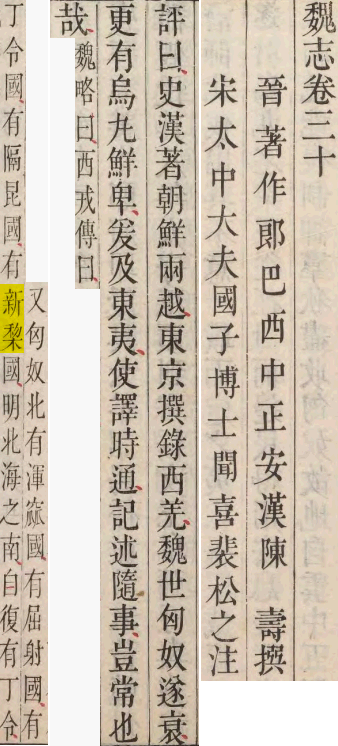 魏志卷三十
晉著作郎巴西中正安漢陳　壽撰
宋太中大夫國子博士聞喜裴松之注
評曰史漢著朝鮮兩越東京撰錄西羌魏世匈奴遂衰
更有烏丸鮮卑爰及東夷使譯時通記述隨事豈常也
哉魏略曰西戎傳曰
又匈奴北有渾窳國有屈射國有
丁令國有隔昆國有新棃國明北海之南自復有丁令